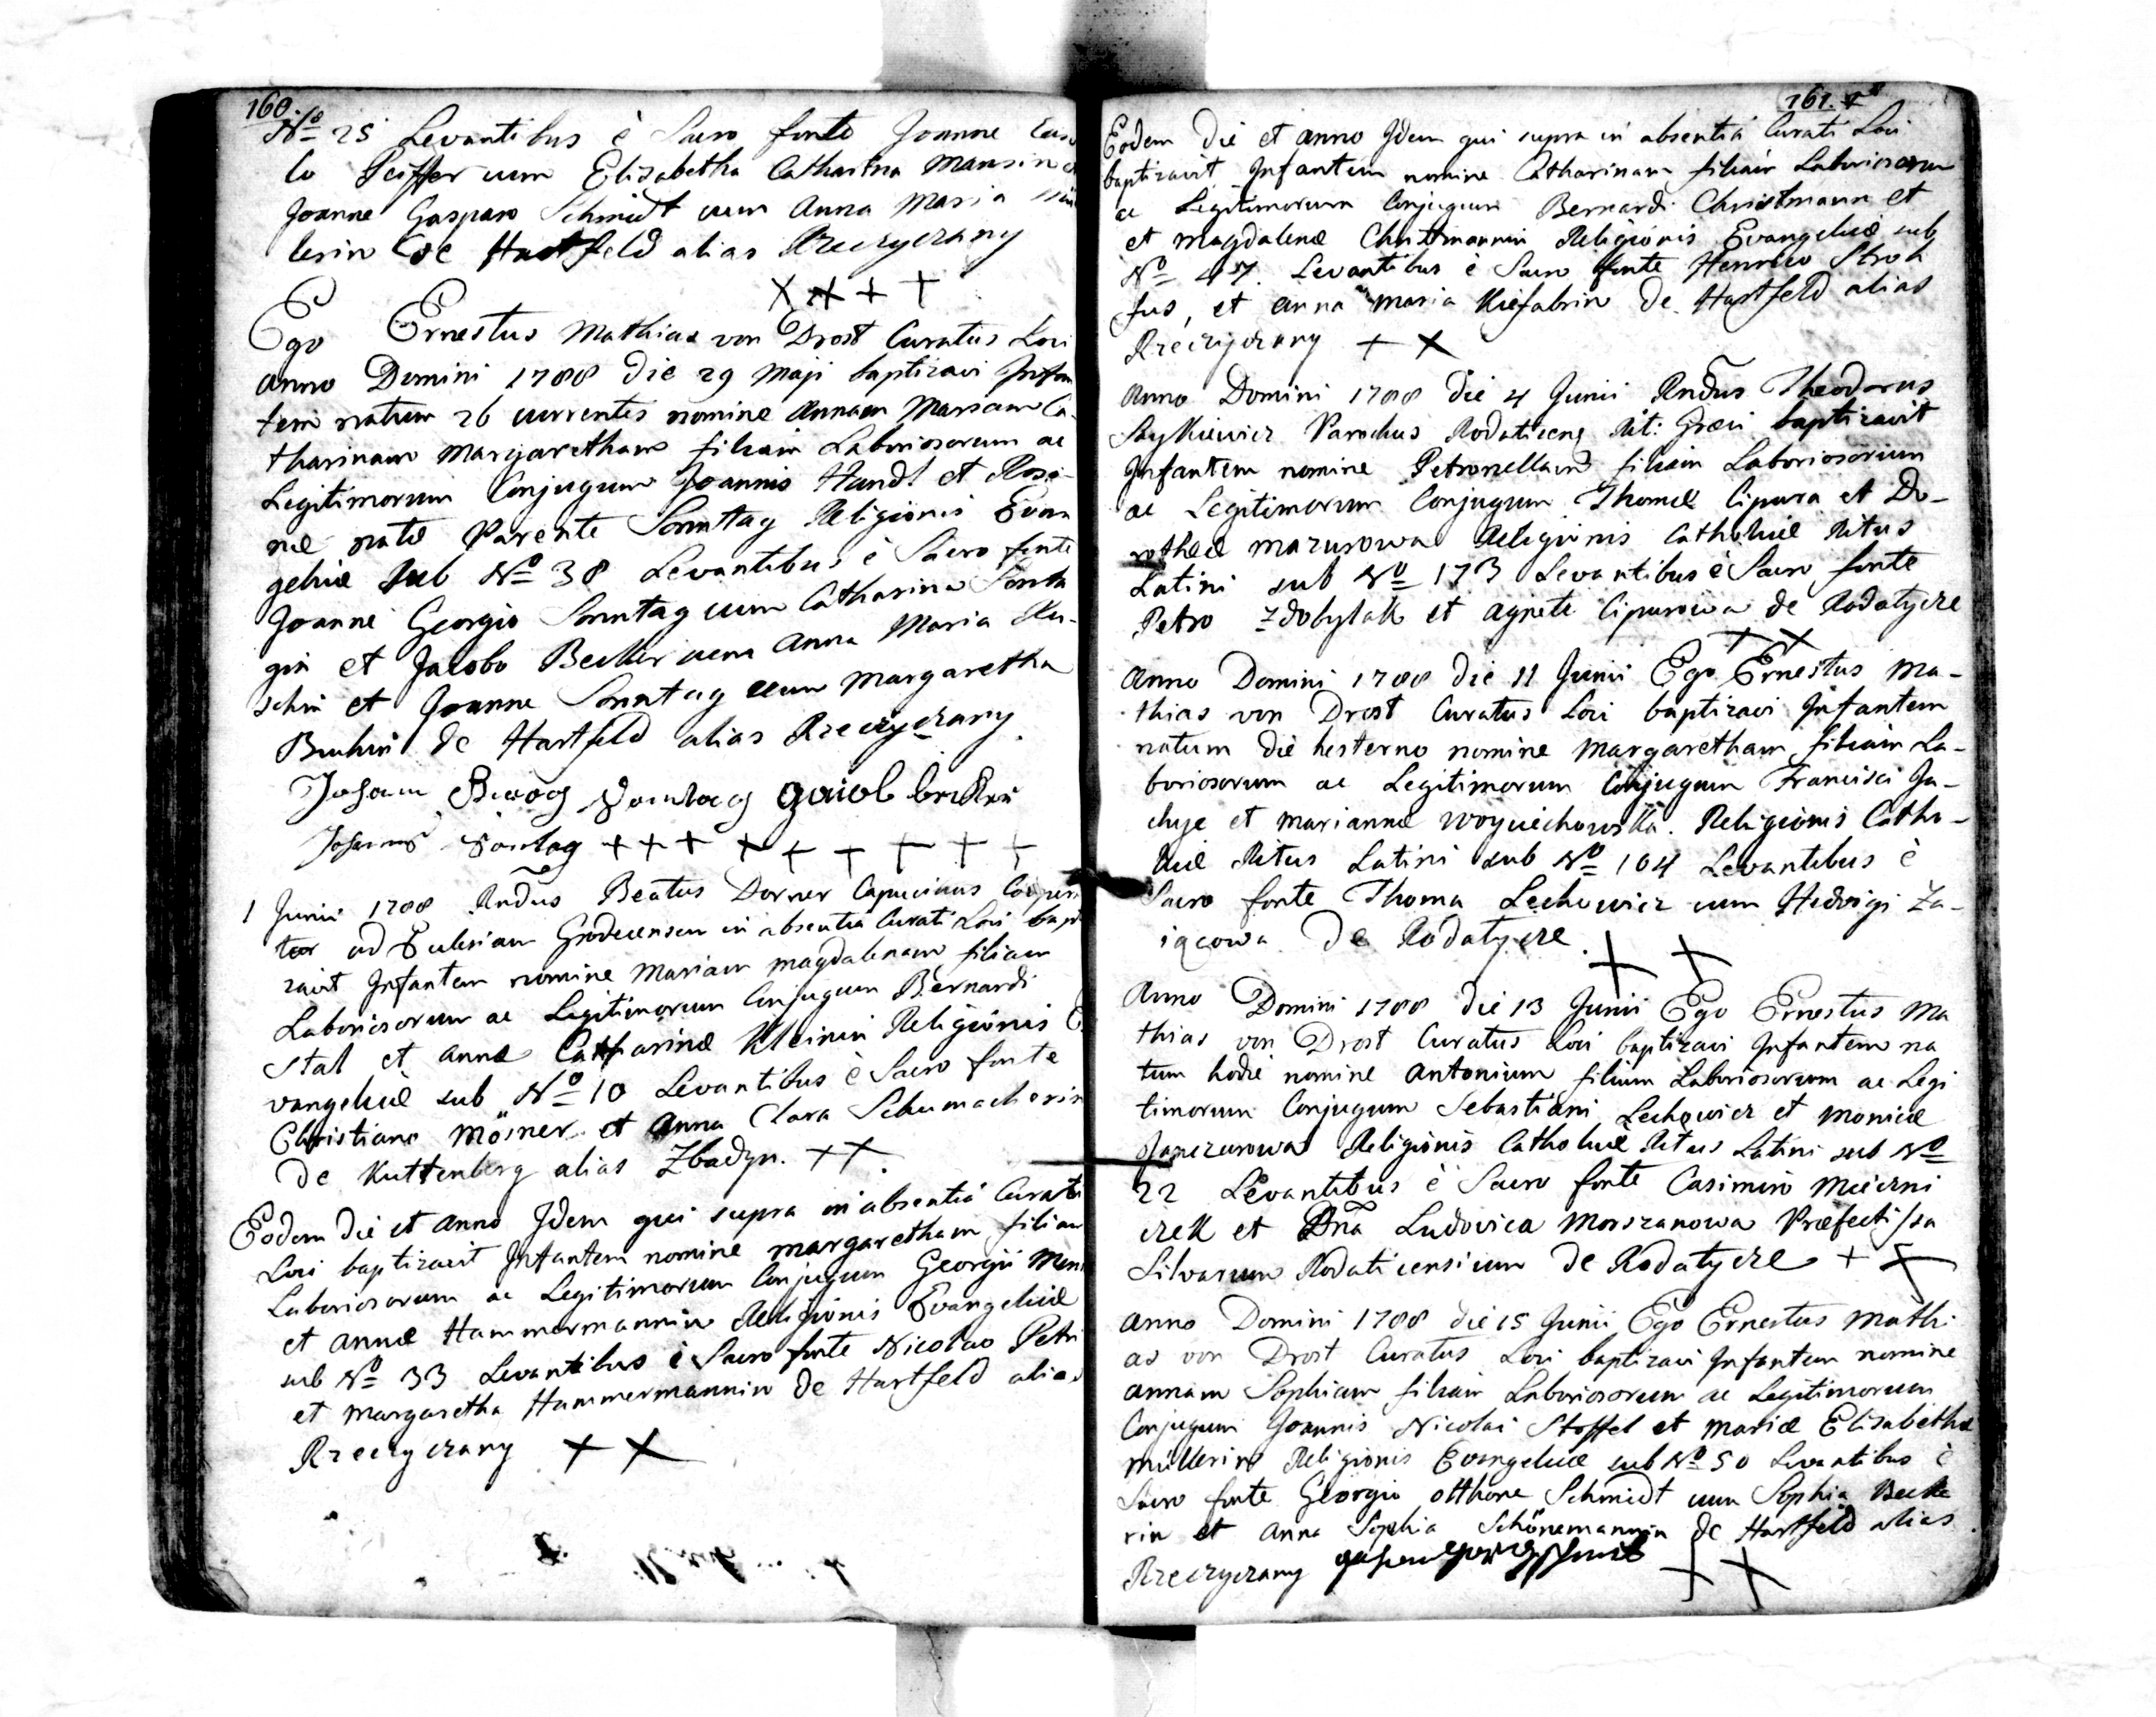 160.
No 25 Levantibus è Sacro fonte Joanne
lo Peiffer cum Elizabetha Catharina Mansin
Joanne Gasparo Schmidt cum Anna Maria
lerin de Hartfeld alias Rzeczyczany
Ego Ernestus Mathias von Drost Curatus Loci
Anno Domini 1788 die 29 Maji baptizavi Infan
tem natum 26 currentis nomine Annam Mariam Ca-
tharinam Margaretham filiam Laboriosorum ac
Legitimorum Conjugum Joannis Handl et Rosi-
næ natæ Parente Sonntag Religionis Evan
gelicæ sub No 38 Levantibus è Sacro fonte
Joanne Georgio Sonntag cum Catharina
gin et Jacobo Becker cum Anna Maria Ku-
schin et Joanne Sonntag cum Margaretha
de Hartfeld alias Rzeczyczany.
1 Junii 1788 Rndus Beatus Dorner Capucinus
ad Ecclesiam Grodecensem in absentia Curati Loci bapti
zavit Infantem nomine Mariam Magdalenam filiam
Laboriosorum ac Legitimorum Conjugum Bernardi
Stal et Annæ Catharinæ Kleinin Religionis E
vangelicæ sub No 10 Levantibus è Sacro fonte
Christiano Mösner et Anna Clara Schumacherin
de Kuttenberg alias Zbadyn. ++.
Eodem die et Anno Idem qui supra in absentiâ Curati
Loci baptizavit Infantem nomine Margaretham filiam
Laboriosorum ac Legitimorum Conjugum Georgii
et Annæ Hammermannin Religionis Evangelicæ
sub No 33 Levantibus è Sacro fonte Nicolao Petri
et Margaretha Hammermannin de Hartfeld alias
Rzeczyczany ++
161.
Eodem die et Anno Idem qui supra in absentiâ Curati Loci
baptizavit Infantem nomine Catharinam filiam Laboriosorum
ac Legitimorum Conjugum Bernardi Christmann et
et Magdalenæ Christmannin Religionis Evangelicæ sub
No 47. Levantibus è Sacro fonte Henrico Stroh
fus, et Anna Maria Kiefabrin de Hartfeld alias
Rzeczyczany ++
Anno Domini 1788 die 4 Junii Rndus Theodorus
Saykiewicz Parochus Rodaticens Rit: Græci baptizavit
Infantem nomine Petronellam filiam Laboriosorum
ac Legitimorum Conjugum Thomæ Cipura et Do-
rotheæ Mazurowa Religionis Catholicæ Ritus
Latini sub No 173 Levantibus è Sacro fonte
Petro Zdobylak et Agnete Cipurowa de Rodatycze
++
Anno Domini 1788 die 11 Junii Ego Ernestus Ma-
thias von Drost Curatus Loci baptizavi Infantem
natum die hesterno nomine Margaretham filiam La-
boriosorum ac Legitimorum Conjugum Francisci Ja-
chyje et Mariannæ Woyciechowska. Religionis Catho-
licæ Ritus Latini sub No 104 Levantibus è
Sacro fonte Thoma Lechowicz cum Hedvigi Za-
iącowa De Rodatycze. ++
Anno Domini 1788 die 13 Junii Ego Ernestus Ma
thias von Drost Curatus Loci baptizavi Infantem na
tum hodie nomine Antonium filium Laboriosorum ac Legi
timorum Conjugum Sebastiani Lechowicz et Monicæ
Religionis Catholicæ Ritus Latini sub No
22 Levantibus è Sacro fonte Casimiro Miczni
czek et Dna Ludovica Morszanowa Præfectissa
Silvarum Rodaticensium de Rodatycze ++
Anno Domini 1788 die 15 Junii Ego Ernestus Mathi
as von Drost Curatus Loci baptizavi Infantem nomine
Annam Sophiam filiam Laboriosorum ac Legitimorum
Conjugum Joannis Nicolai Stoffel et Mariæ Elisabethæ
Müllerin Religionis Evangelicæ sub No 50 Levantibus è
Sacro fonte Georgio Otthone Schmidt cum Sophia Becke
rin et Anna Sophia Schönemannin de Hartfeld alias
Rzeczyczany ++